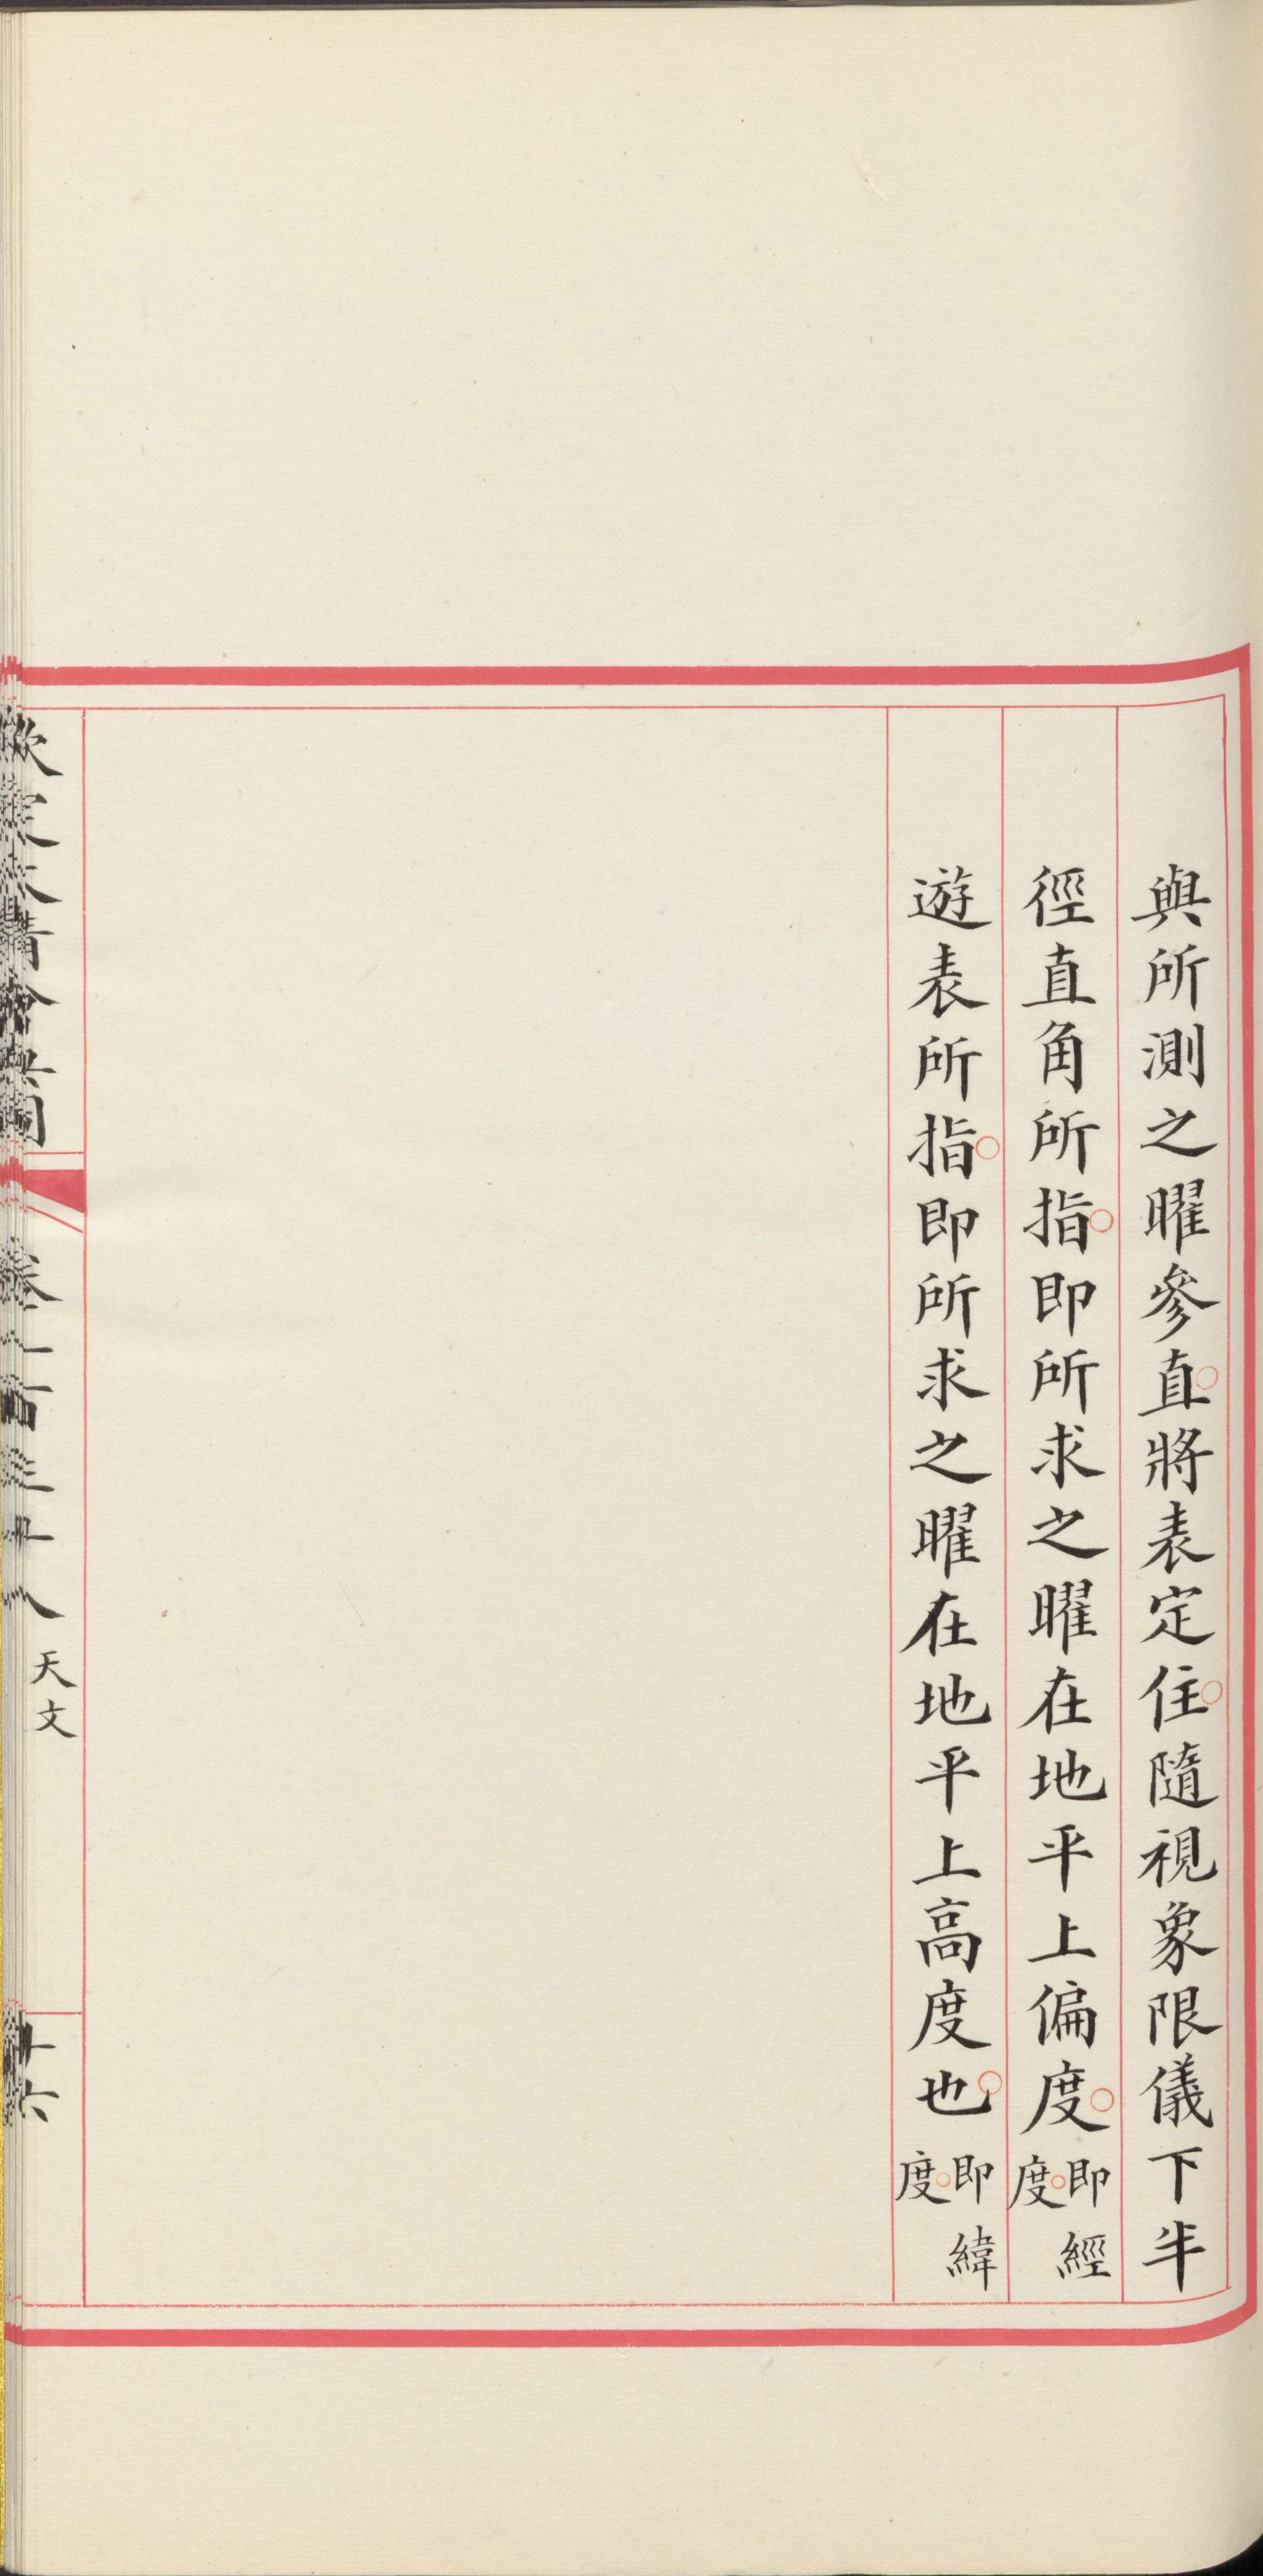 與所測之曜參直將表定住隨視象限儀下半
徑直角所指即所求之曜在地平上偏度即經度
遊表所指即所求之曜在地平上高度也即緯度
欽定大清會典圖 卷一百三十八 天文 廿六